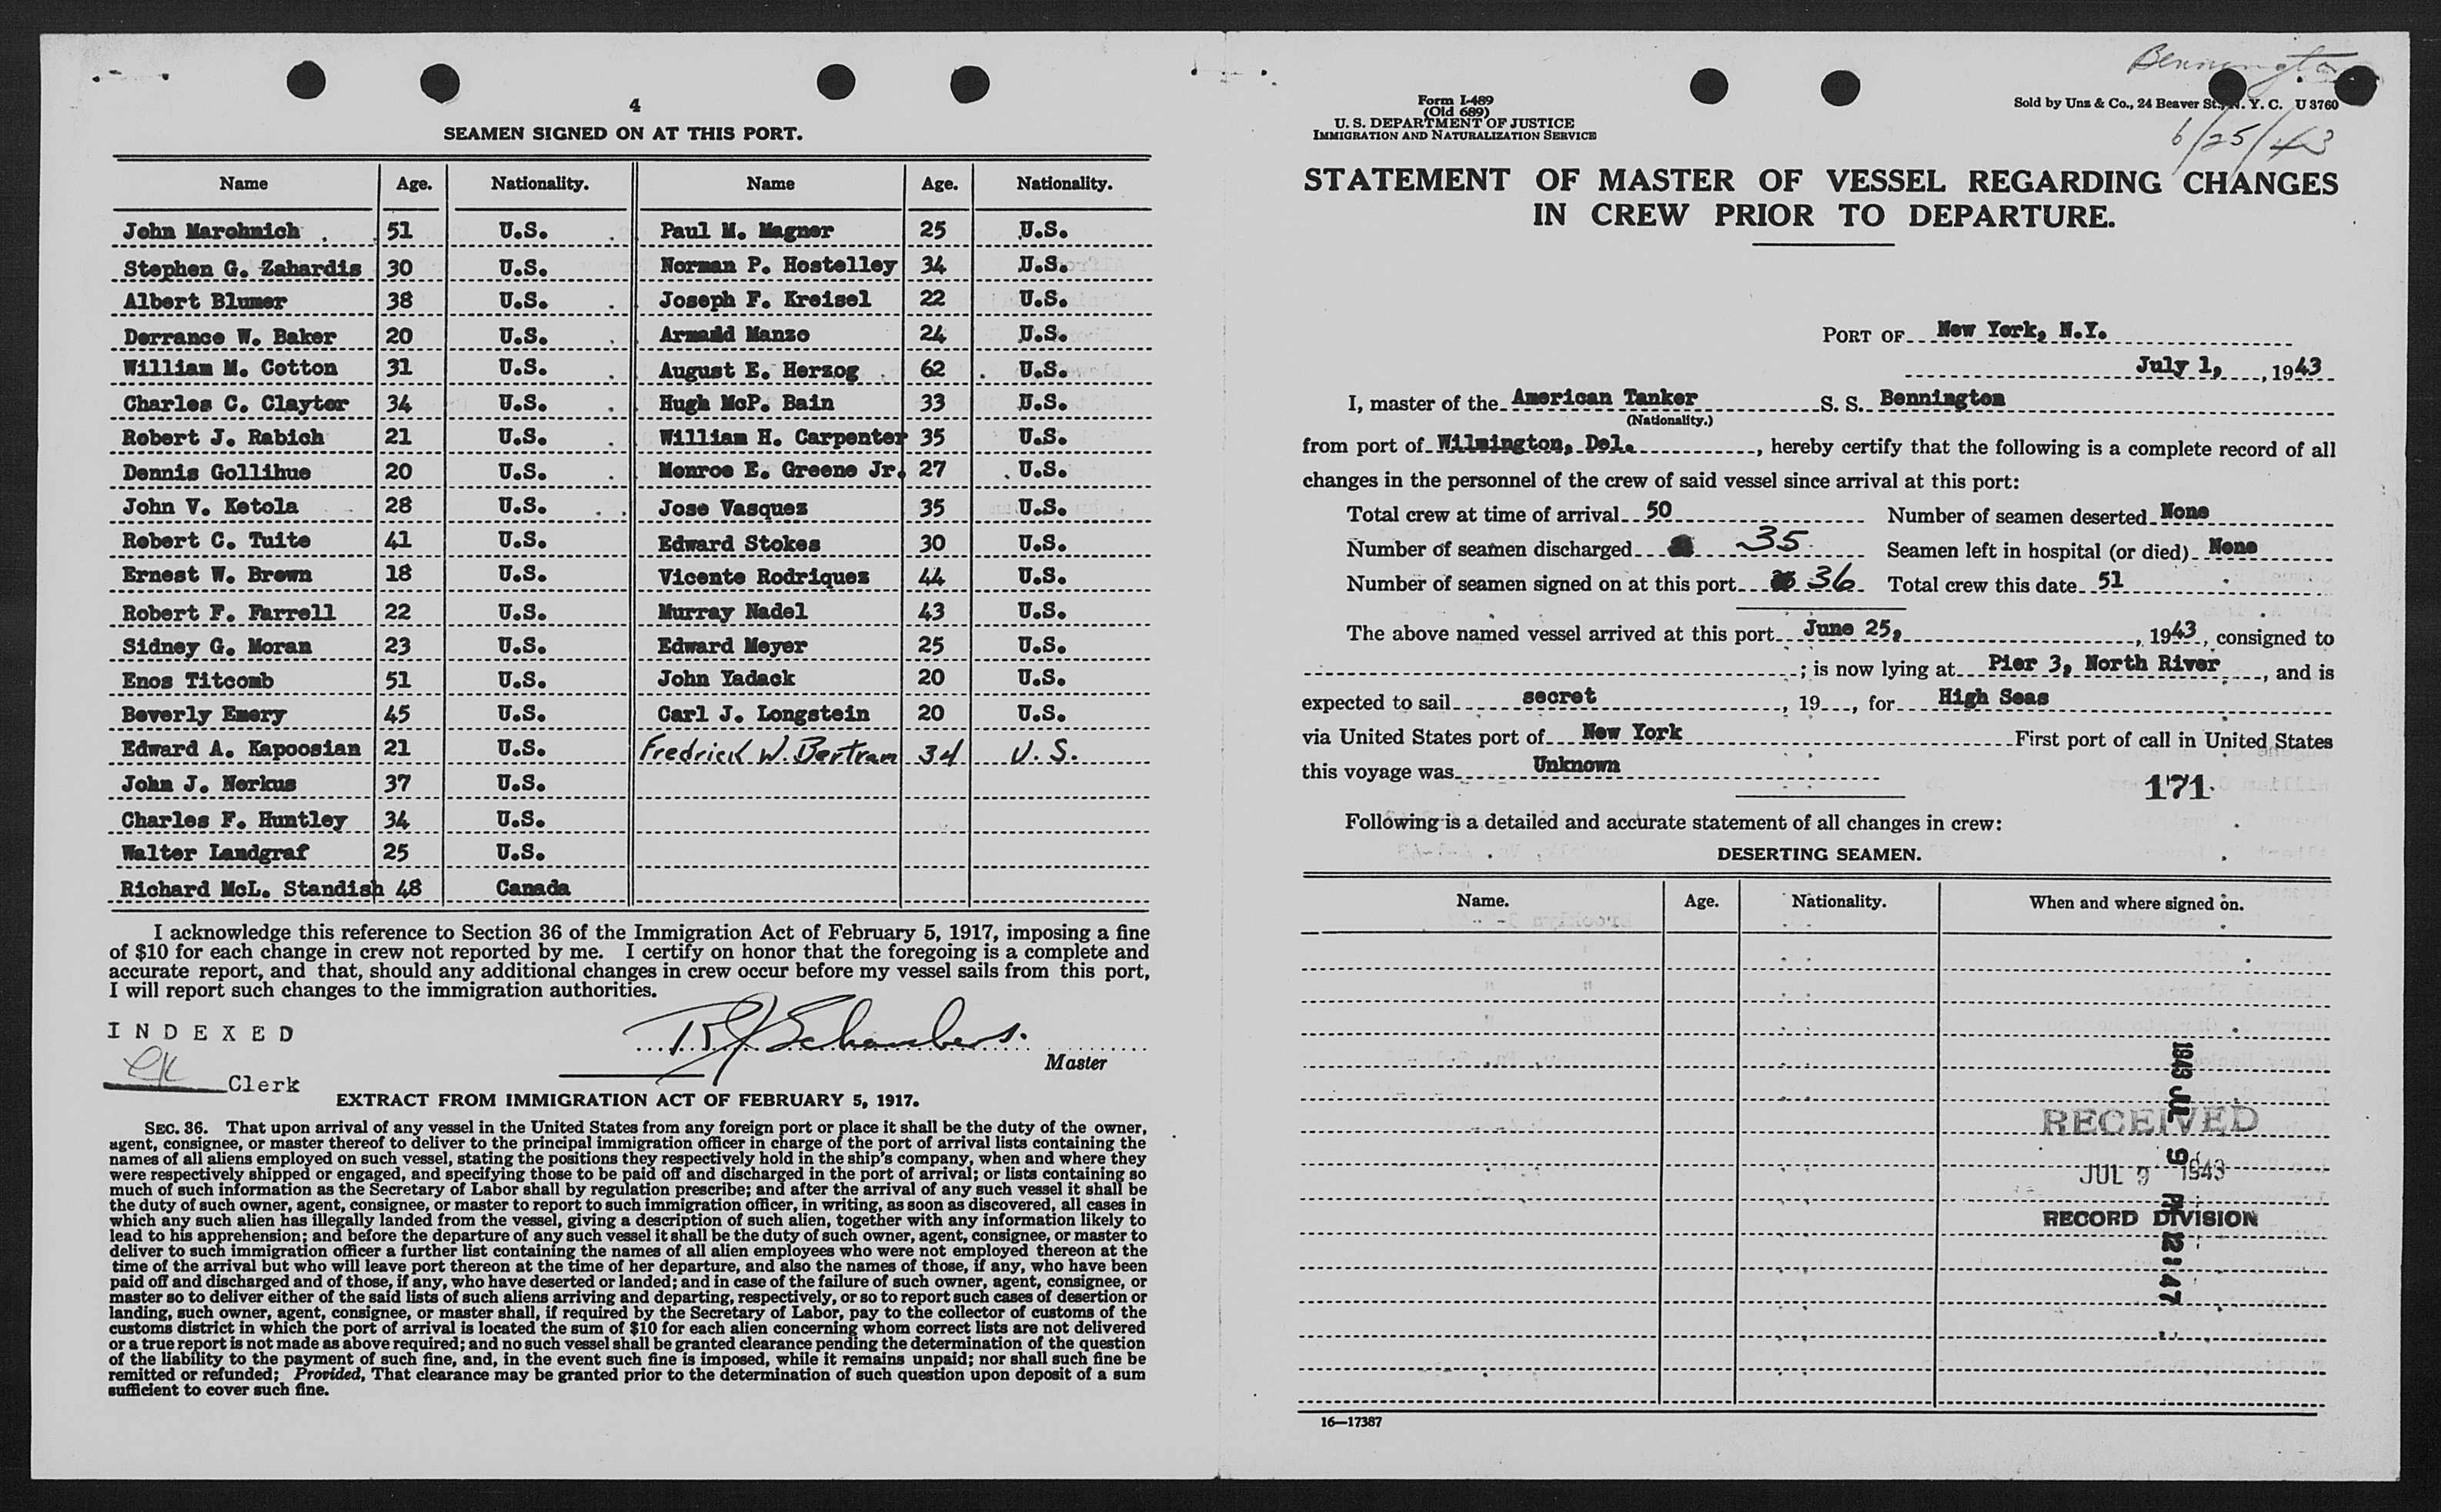 4
SEAMEN SIGNED ON AT THIS PORT.
Name Age. Nationality. Name Age. Nationality.
John Marohnich 51 U.S. Paul M. Magner 25 U.S.
Stephen G. Zahardis 30 U.S. Norman P. Hostelley 34 U.S.
Albert Blumer 38 U.S. Joseph F. Kreisel 22 U.S.
Derrance W. Baker 20 U.S. Armand Manzo 24 U.S.
William M. Cotton 31 U.S. August E. Herzog 62 U.S.
Charles C. Clayter 34 U.S. Hugh McP. Bain 33 U.S.
Robert J. Rabich 21 U.S. William H. Carpenter 35 U.S.
Dennis Gollihue 20 U.S. Monroe E. Greene Jr. 27 U.S.
John V. Ketola 28 U.S. Jose Vasquez 35 U.S.
Robert C. Tuite 41 U.S. Edward Stokes 30 U.S.
Ernest W. Brown 18 U.S. Vicente Rodriquez 44 U.S.
Robert F. Farrell 22 U.S. Murray Nadel 43 U.S.
Sidney G. Moran 23 U.S. Edward Meyer 25 U.S.
Enos Titcomb 51 U.S. John Yadack 20 U.S.
Beverly Emery 45 U.S. Carl J. Longstein 20 U.S.
Edward A. Kapoosian 21 U.S. Fredrick W. Bertram 34 U.S.
John J. Norkus 37 U.S.
Charles F. Huntley 34 U.S.
Walter Landgraf 25 U.S.
Richard McL. Standish 48 Canada
I acknowledge this reference to Section 36 of the Immigration Act of February 5, 1917, imposing a fine
of $10 for each change in crew not reported by me. I certify on honor that the foregoing is a complete and
accurate report, and that, should any additional changes in crew occur before my vessel sails from this port,
I will report such changes to the immigration authorities.
INDEXED
Clerk
Master
EXTRACT FROM IMMIGRATION ACT OF FEBRUARY 5, 1917.
SEC. 36. That upon arrival of any vessel in the United States from any foreign port or place it shall be the duty of the owner,
agent, consignee, or master thereof to deliver to the principal immigration officer in charge of the port of arrival lists containing the
names of all aliens employed on such vessel, stating the positions they respectively hold in the ship's company, when and where they
were respectively shipped or engaged, and specifying those to be paid off and discharged in the port of arrival; or lists containing so
much of such information as the Secretary of Labor shall by regulation prescribe; and after the arrival of any such vessel it shall be
the duty of such owner, agent, consignee, or master to report to such immigration officer, in writing, as soon as discovered, all cases in
which any such alien has illegally landed from the vessel, giving a description of such alien, together with any information likely to
lead to his apprehension; and before the departure of any such vessel it shall be the duty of such owner, agent, consignee, or master to
deliver to such immigration officer a further list containing the names of all alien employees who were not employed thereon at the
time of the arrival but who will leave port thereon at the time of her departure, and also the names of those, if any, who have been
paid off and discharged and of those, if any, who have deserted or landed; and in case of the failure of such owner, agent, consignee, or
master so to deliver either of the said lists of such aliens arriving and departing, respectively, or so to report such cases of desertion or
landing, such owner, agent, consignee, or master shall, if required by the Secretary of Labor, pay to the collector of customs of the
customs district in which the port of arrival is located the sum of $10 for each alien concerning whom correct lists are not delivered
or a true report is not made as above required; and no such vessel shall be granted clearance pending the determination of the question
of the liability to the payment of such fine, and, in the event such fine is imposed, while it remains unpaid; nor shall such fine be
remitted or refunded; Provided, That clearance may be granted prior to the determination of such question upon deposit of a sum
sufficient to cover such fine.
Bennington
Form I-489
(Old 689)
U. S. DEPARTMENT OF JUSTICE
IMMIGRATION AND NATURALIZATION SERVICE
Sold by Unz & Co., 24 Beaver St., N. Y. C. U 3760
6/25/43
STATEMENT OF MASTER OF VESSEL REGARDING CHANGES
IN CREW PRIOR TO DEPARTURE.
PORT OF New York, N.Y.
July 1, 1943
I, master of the American Tanker S. S. Bennington
(Nationality.)
from port of Wilmington, Del., hereby certify that the following is a complete record of all
changes in the personnel of the crew of said vessel since arrival at this port:
Total crew at time of arrival 50 Number of seamen deserted None
Number of seamen discharged 35 Seamen left in hospital (or died) None
Number of seamen signed on at this port 36 Total crew this date 51
The above named vessel arrived at this port June 25, 1943, consigned to
; is now lying at Pier 3, North River, and is
expected to sail secret, 19 , for High Seas
via United States port of New York First port of call in United States
this voyage was Unknown
171
Following is a detailed and accurate statement of all changes in crew:
DESERTING SEAMEN.
Name. Age. Nationality. When and where signed on.
RECEIVED
JUL 9 1943
RECORD DIVISION
1943 JUL 9 PM 12:47
16—17387